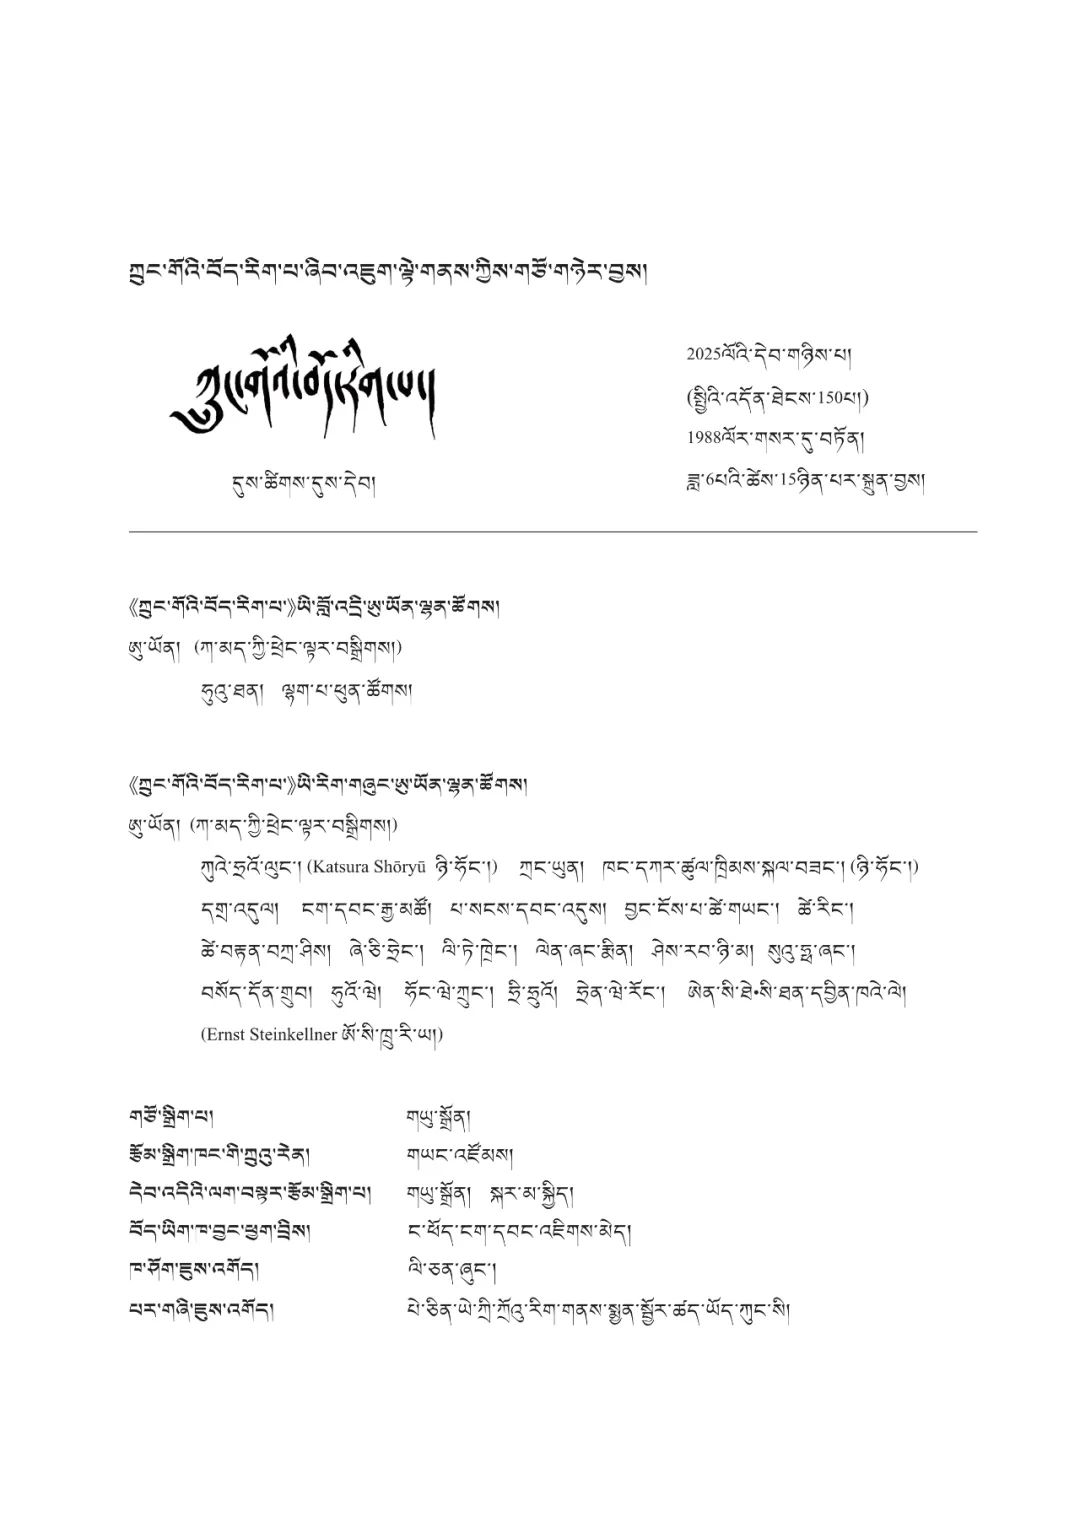 ཀྲུང་གོའི་བོད་རིག་པ་ཞིབ་འཇུག་ལྟེ་གནས་ཀྱིས་གཙོ་གཉེར་བྱས།
ཀྲུང་གོའི་བོད་རིག་པ།
དུས་ཚིགས་དུས་དེབ།
2025ལོའི་དེབ་གཉིས་པ།
(སྤྱིའི་འདོན་ཐེངས་150པ།)
1988ལོར་གསར་དུ་བཏོན།
ཟླ་6པའི་ཚེས་15ཉིན་པར་སྐྲུན་བྱས།
《ཀྲུང་གོའི་བོད་རིག་པ་》ཡི་བློ་འདྲི་ཨུ་ཡོན་ལྷན་ཚོགས།
ཨུ་ཡོན། (ཀ་མད་ཀྱི་ཕྲེང་ལྟར་བསྒྲིགས།)
ཧུའུ་ཐན། ལྷག་པ་ཕུན་ཚོགས།
《ཀྲུང་གོའི་བོད་རིག་པ་》ཡི་རིག་གཞུང་ཨུ་ཡོན་ལྷན་ཚོགས།
ཨུ་ཡོན། (ཀ་མད་ཀྱི་ཕྲེང་ལྟར་བསྒྲིགས།)
ཀུའེ་ཧྲའོ་ལུང་། (Katsura Shōryū ཉི་ཧོང་།) ཀྲང་ཡུན། ཁང་དཀར་ཚུལ་ཁྲིམས་སྐལ་བཟང་། (ཉི་ཧོང་།)
དགྲ་འདུལ། ངག་དབང་རྒྱ་མཚོ། པ་སངས་དབང་འདུས། བྱང་ངོས་པ་ཚེ་གཡང་། ཚེ་རིང་།
ཚེ་བརྟན་བཀྲ་ཤིས། ཞེ་ཅི་ཧྲེང་། ལི་ཏེ་ཁྲེང་། ལེན་ཞང་རྨིན། ཤེས་རབ་ཉི་མ། སུའུ་ཧྥ་ཞང་།
བསོད་དོན་གྲུབ། ཧུའོ་ཝེ། ཧོང་ཝེ་ཀྲུང་། ཧྲི་ཧྲུའོ། ཧྲེན་ཝེ་རོང་། ཨེན་སི་ཐེ•སི་ཐན་དབྱིན་ཁའེ་ལེ།
(Ernst Steinkellner ཨོ་སི་ཁྲུ་རི་ཡ།)
གཙོ་སྒྲིག་པ། གཡུ་སྒྲོན།
རྩོམ་སྒྲིག་ཁང་གི་ཀྲུའུ་རེན། གཡང་འཛོམས།
དེབ་འདིའི་ལག་བསྟར་རྩོམ་སྒྲིག་པ། གཡུ་སྒྲོན། སྐར་མ་སྐྱིད།
བོད་ཡིག་ཁ་བྱང་ཕྱག་བྲིས། ང་ཕོད་ངག་དབང་འཇིགས་མེད།
ཁ་ཤོག་ཇུས་འགོད། ལི་ཅན་ཞུང་།
པར་གཞི་ཇུས་འགོད། པེ་ཅིན་ཡེ་ཀྲི་ཀྲོའུ་རིག་གནས་སྨྱན་སྦྱོར་ཚད་ཡོད་ཀུང་སི།